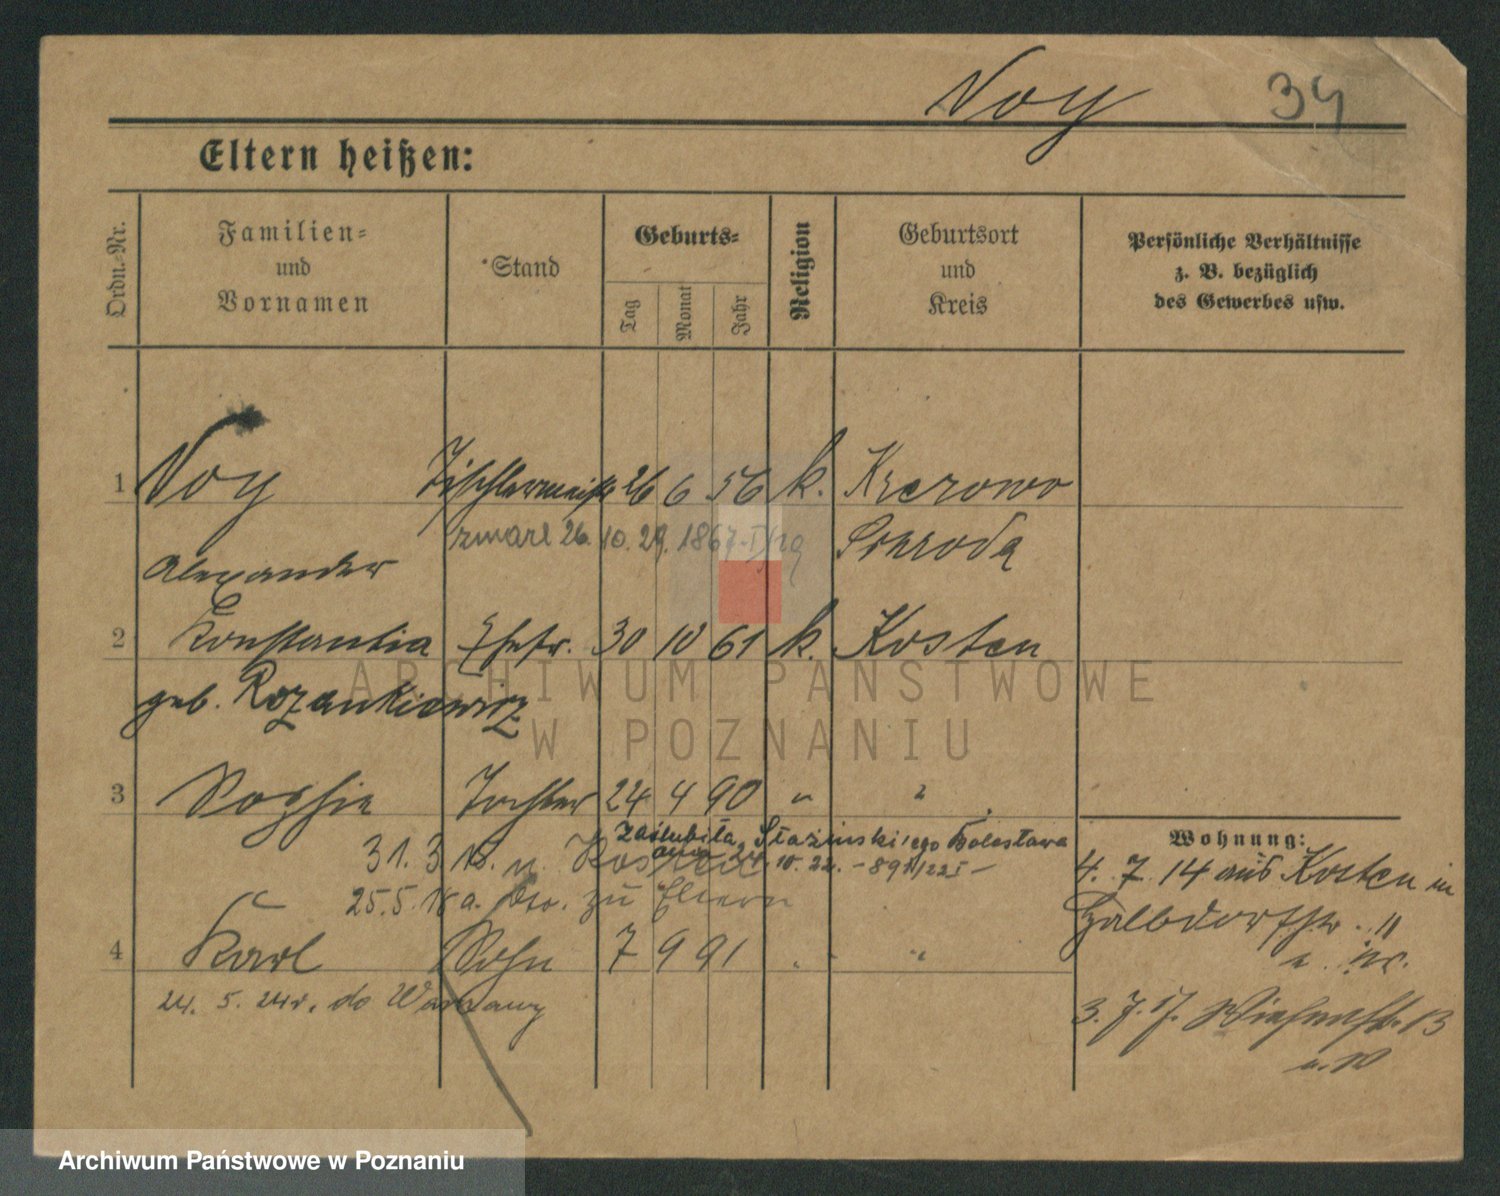 Noy 34
Eltern heißen:
Ordn.-Nr.
Familien-
und
Vornamen
Stand
Geburts-
Tag
Monat
Jahr
Religion
Geburtsort
und
Kreis
Persönliche Verhältnisse
z. B. bezüglich
des Gewerbes usw.
1 Noy Tischlermeistr 26 6 56 k. Krerowo
zmarł 26. 10. 29. 1867 Schroda
Alexander
2 Konstantia Ehefr. 30 10 61 k. Kosten
geb. Rozankiewicz
ARCHIWUM PAŃSTWOWE
W POZNANIU
3 Sophie Tochter 24 4 90 " "
zaślubiła Stażinski/ego Bolesława
31. 3 18. n. 10. 22. - 891/22I -
25.5. 18 a. zu Eltern
Wohnung:
4. 7. 14 aus Kosten in
Halbdorfstr. 11
3. 7. 17. Wiesenstr. 13
4 Karl Sohn 7 9 91 " "
24. 5. 24r. do Warszawy
Archiwum Państwowe w Poznaniu